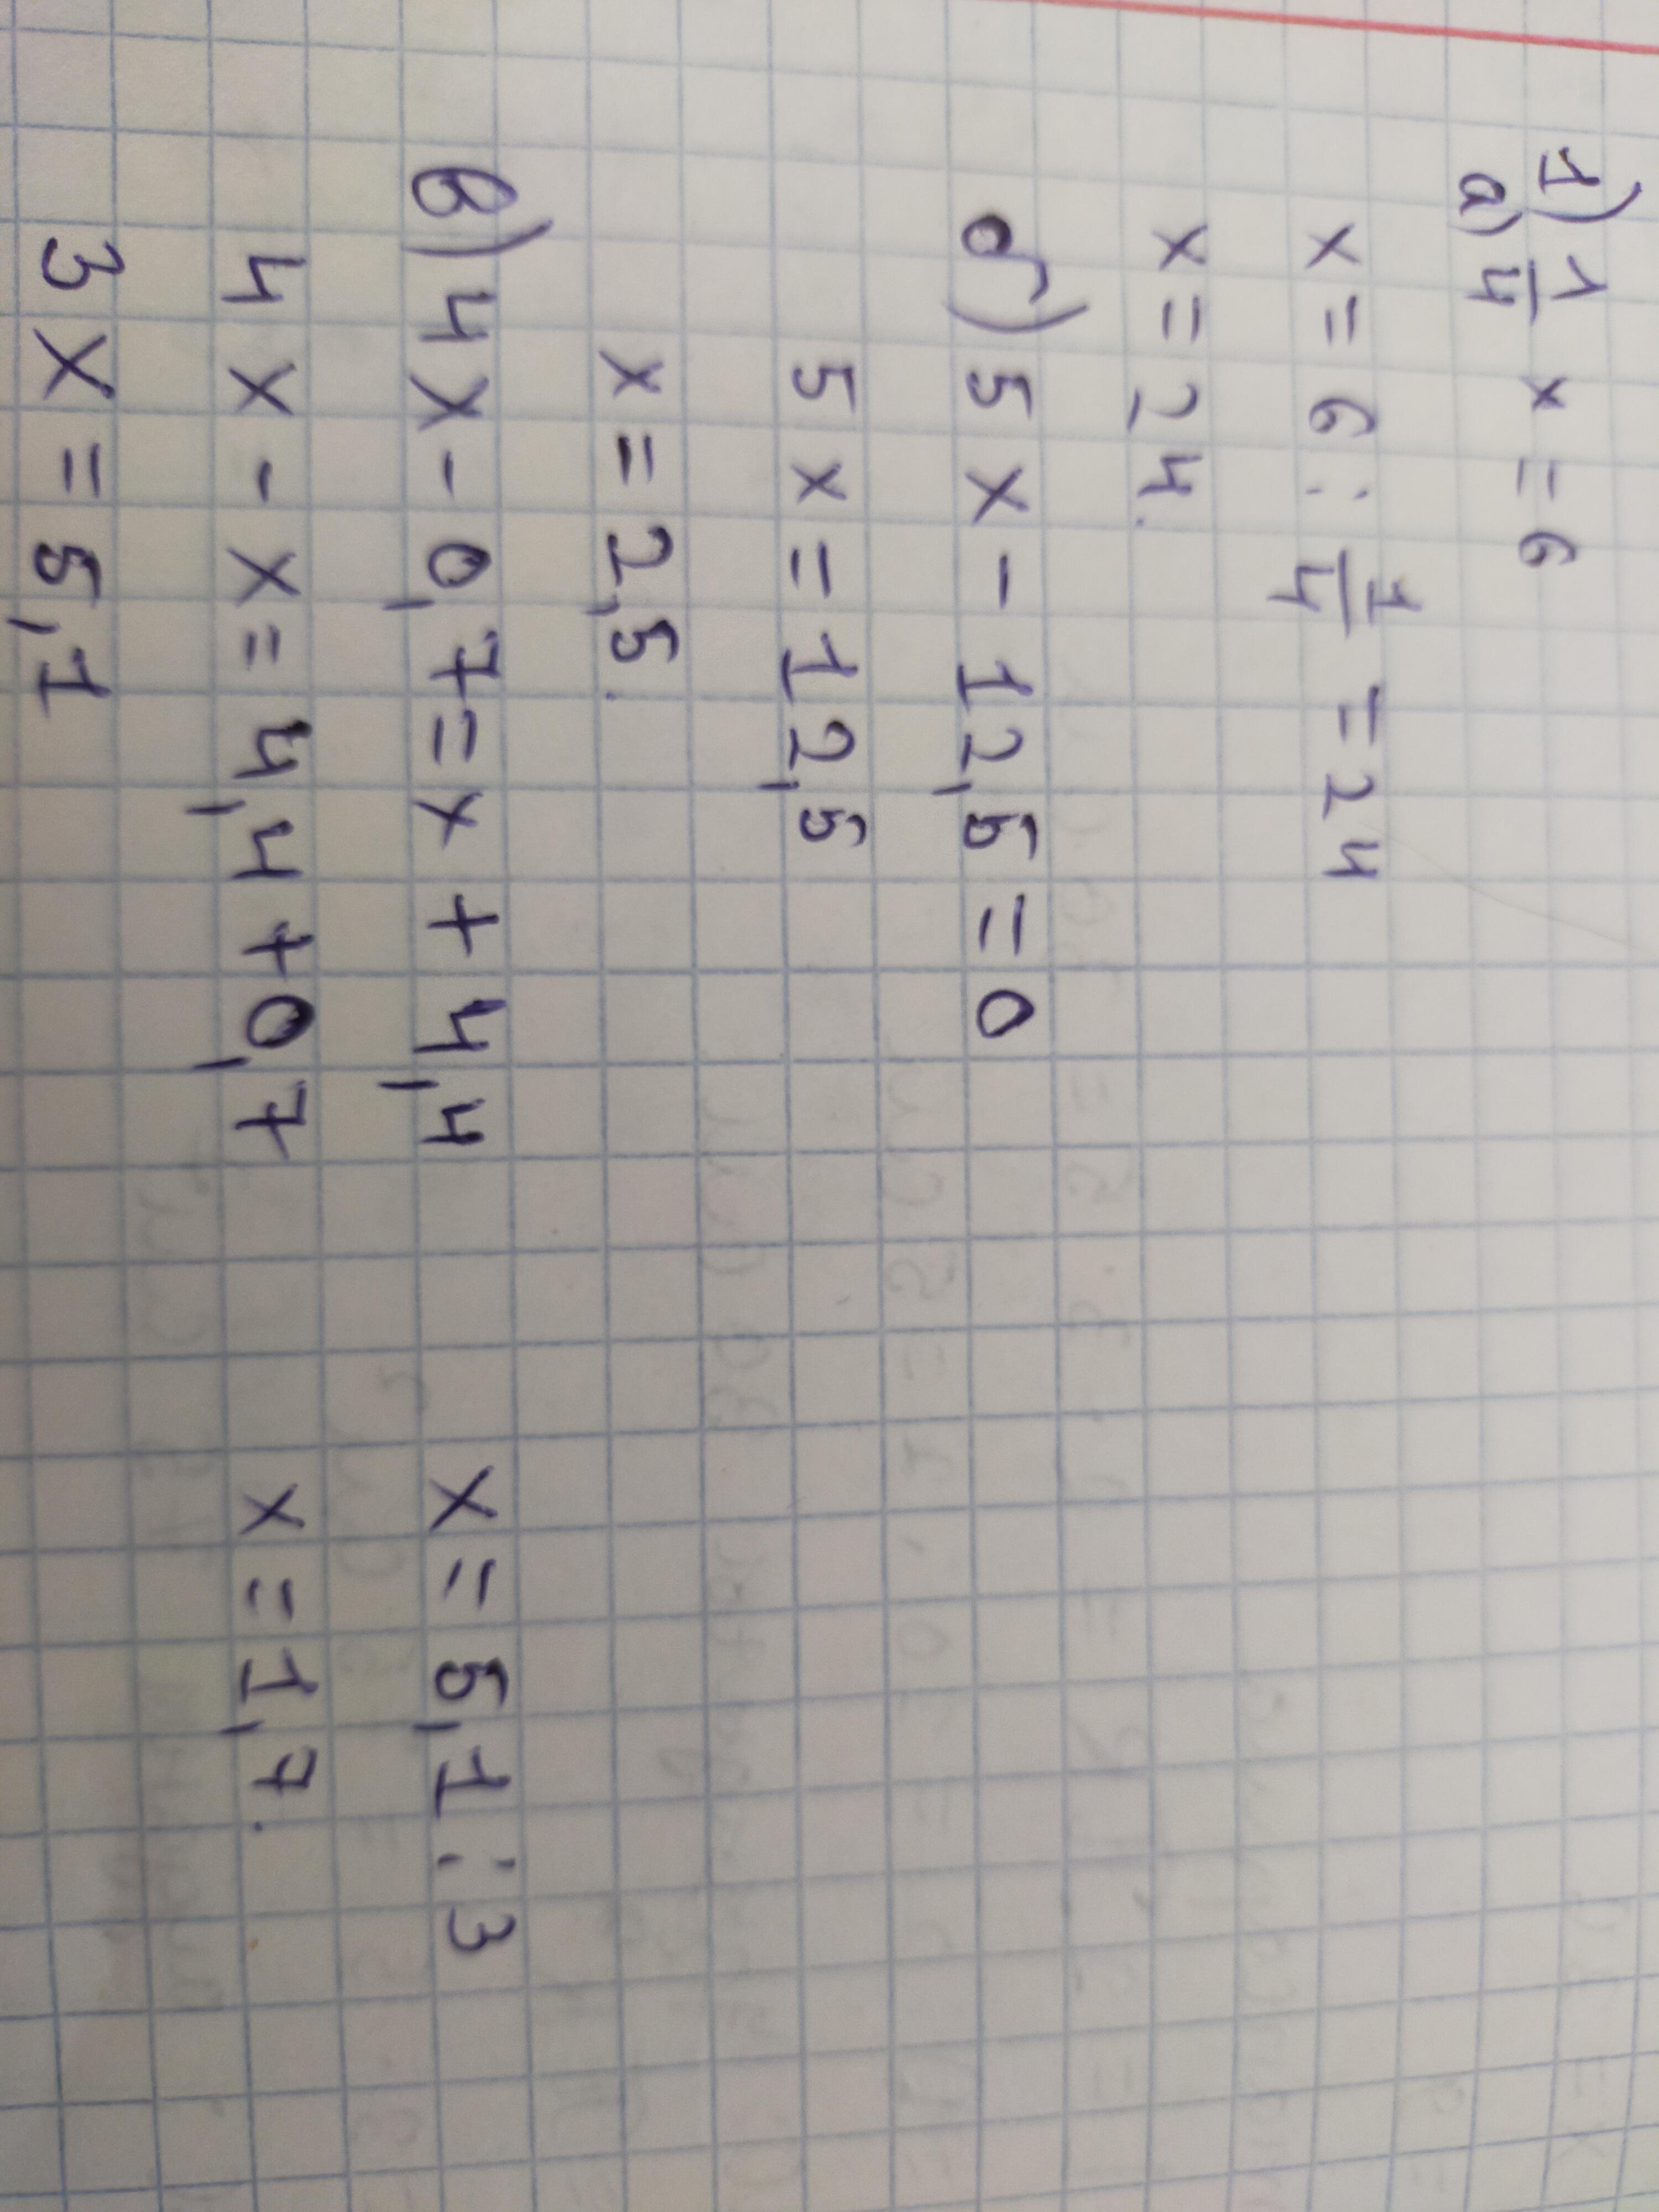 1)
а) 1/4 x = 6
x = 6 : 1/4 = 24
x = 24.
б) 5x - 12,5 = 0
5x = 12,5
x = 2,5.
в) 4x - 0,7 = x + 4,4
4x - x = 4,4 + 0,7
3x = 5,1
x = 5,1 : 3
x = 1,7.